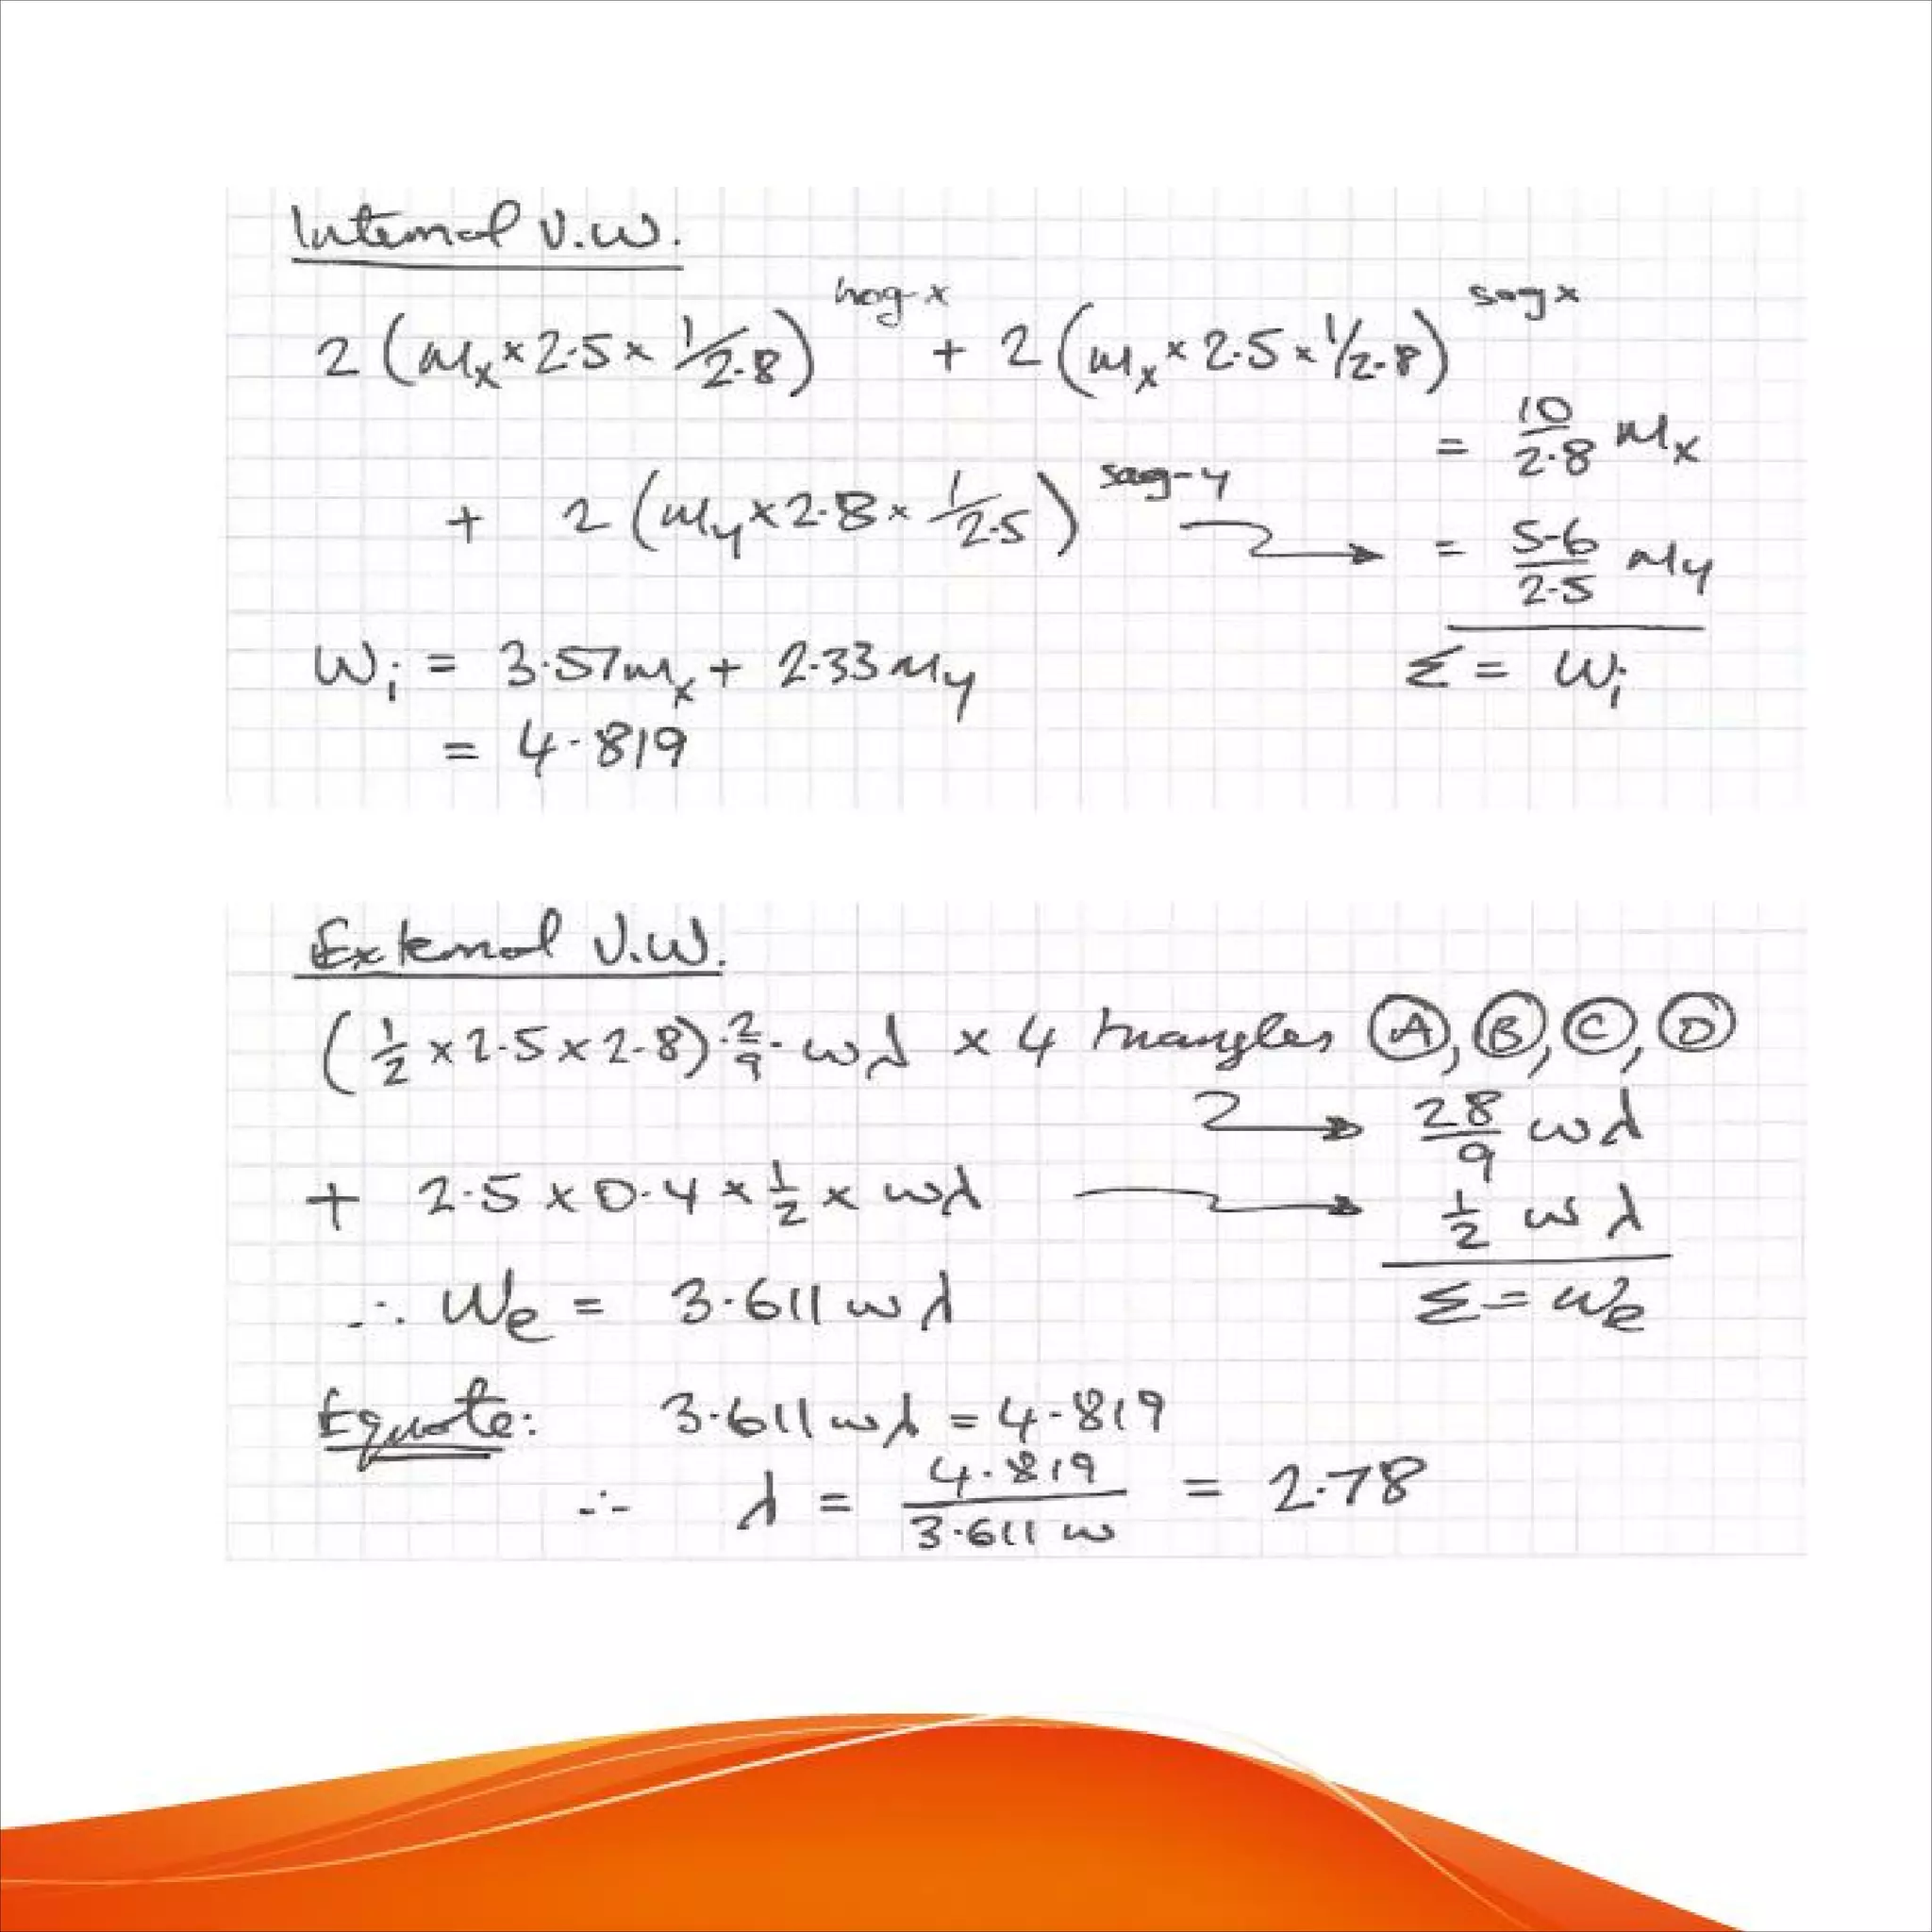 Internal V.W.
2 (mx × 2.5 × 1/2.8) hog-x + 2 (mx × 2.5 × 1/2.8) sag x
= 10/2.8 mx
+ 2 (my × 2.8 × 1/2.5) sag-y → = 5.6/2.5 my
Wi = 3.57mx + 2.33my Σ = Wi
= 4.819
External V.W.
(1/2 × 2.5 × 2.8) · 2/9 · wλ × 4 triangles Ⓐ, Ⓑ, Ⓒ, Ⓓ
→ 28/9 wλ
+ 2.5 × 0.4 × 1/2 × wλ → 1/2 wλ
∴ We = 3.611 wλ Σ = We
Equate: 3.611 wλ = 4.819
∴ λ = 4.819/3.611 w = 2.78